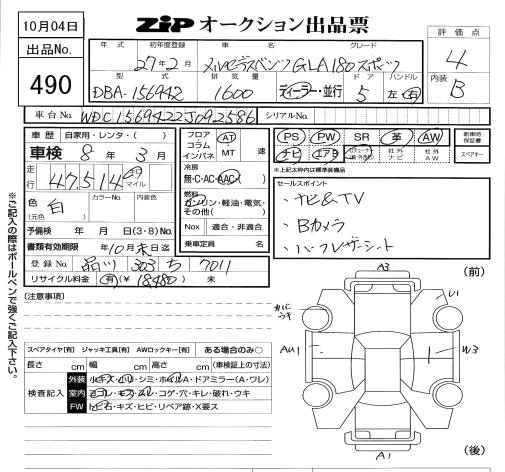 10月04日
ZIP オークション出品票
出品No.
490
年式 初年度登録 車名 グレード
27年2月 メルセデスベンツ GLA180スポーツ
型式 排気量 ドア ハンドル
DBA-156942 1600 ディーラー・並行 5 左・右
評価点
4
内装
B
車台No. WDC1569422J092586 シリアルNo.
車歴 自家用・レンタ・( )
車検 8年 3月
走行 47,514 キロ マイル
色 (元色) 白 カラーNo. 内装色
予備検 年 月 日(3・8)No.
書類有効期限 10月末日迄
登録No. 品川 303 ち 7011
リサイクル料金 有(¥18,480) 未
フロア コラム インパネ AT・MT 速
冷房 無・C・AC・AAC
燃料 ガソリン・軽油・電気・その他( )
Nox 適合・非適合
乗車定員 名
PS PW SR 革 AW
ナビ エアB 社外ナビ 社外AW
新車時保証書
スペアキー
※上記太枠内は標準装備品
セールスポイント
・ナビ&TV
・Bカメラ
・ハーフレザーシート
※ご記入の際はボールペンで強くご記入下さい。
[注意事項]
スペアタイヤ[有] ジャッキ工具[有] AWロックキー[有] ある場合のみ○
長さ cm 幅 cm 高さ cm (車検証上の寸法)
検査記入
外装 小キズ・小凹・シミ・ホイルA・ドアミラー(A・ワレ)
室内 ヨゴレ・キズ・スレ・コゲ・穴・キレ・破れ・ウキ
FW トビ石・キズ・ヒビ・リペア跡・X要ス
(前)
A3
U1
カバーウキ
AU1
1
W3
A1
(後)